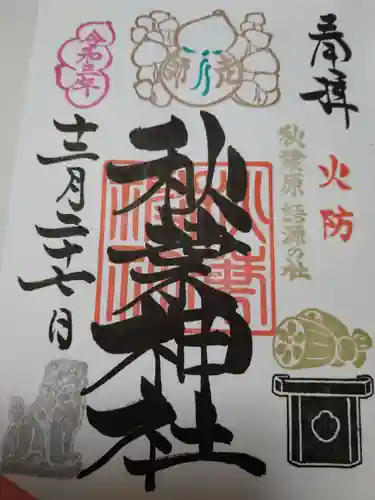 奉拝
火防
秋葉原・語源の社
秋葉神社
令和三年
十二月二十七日